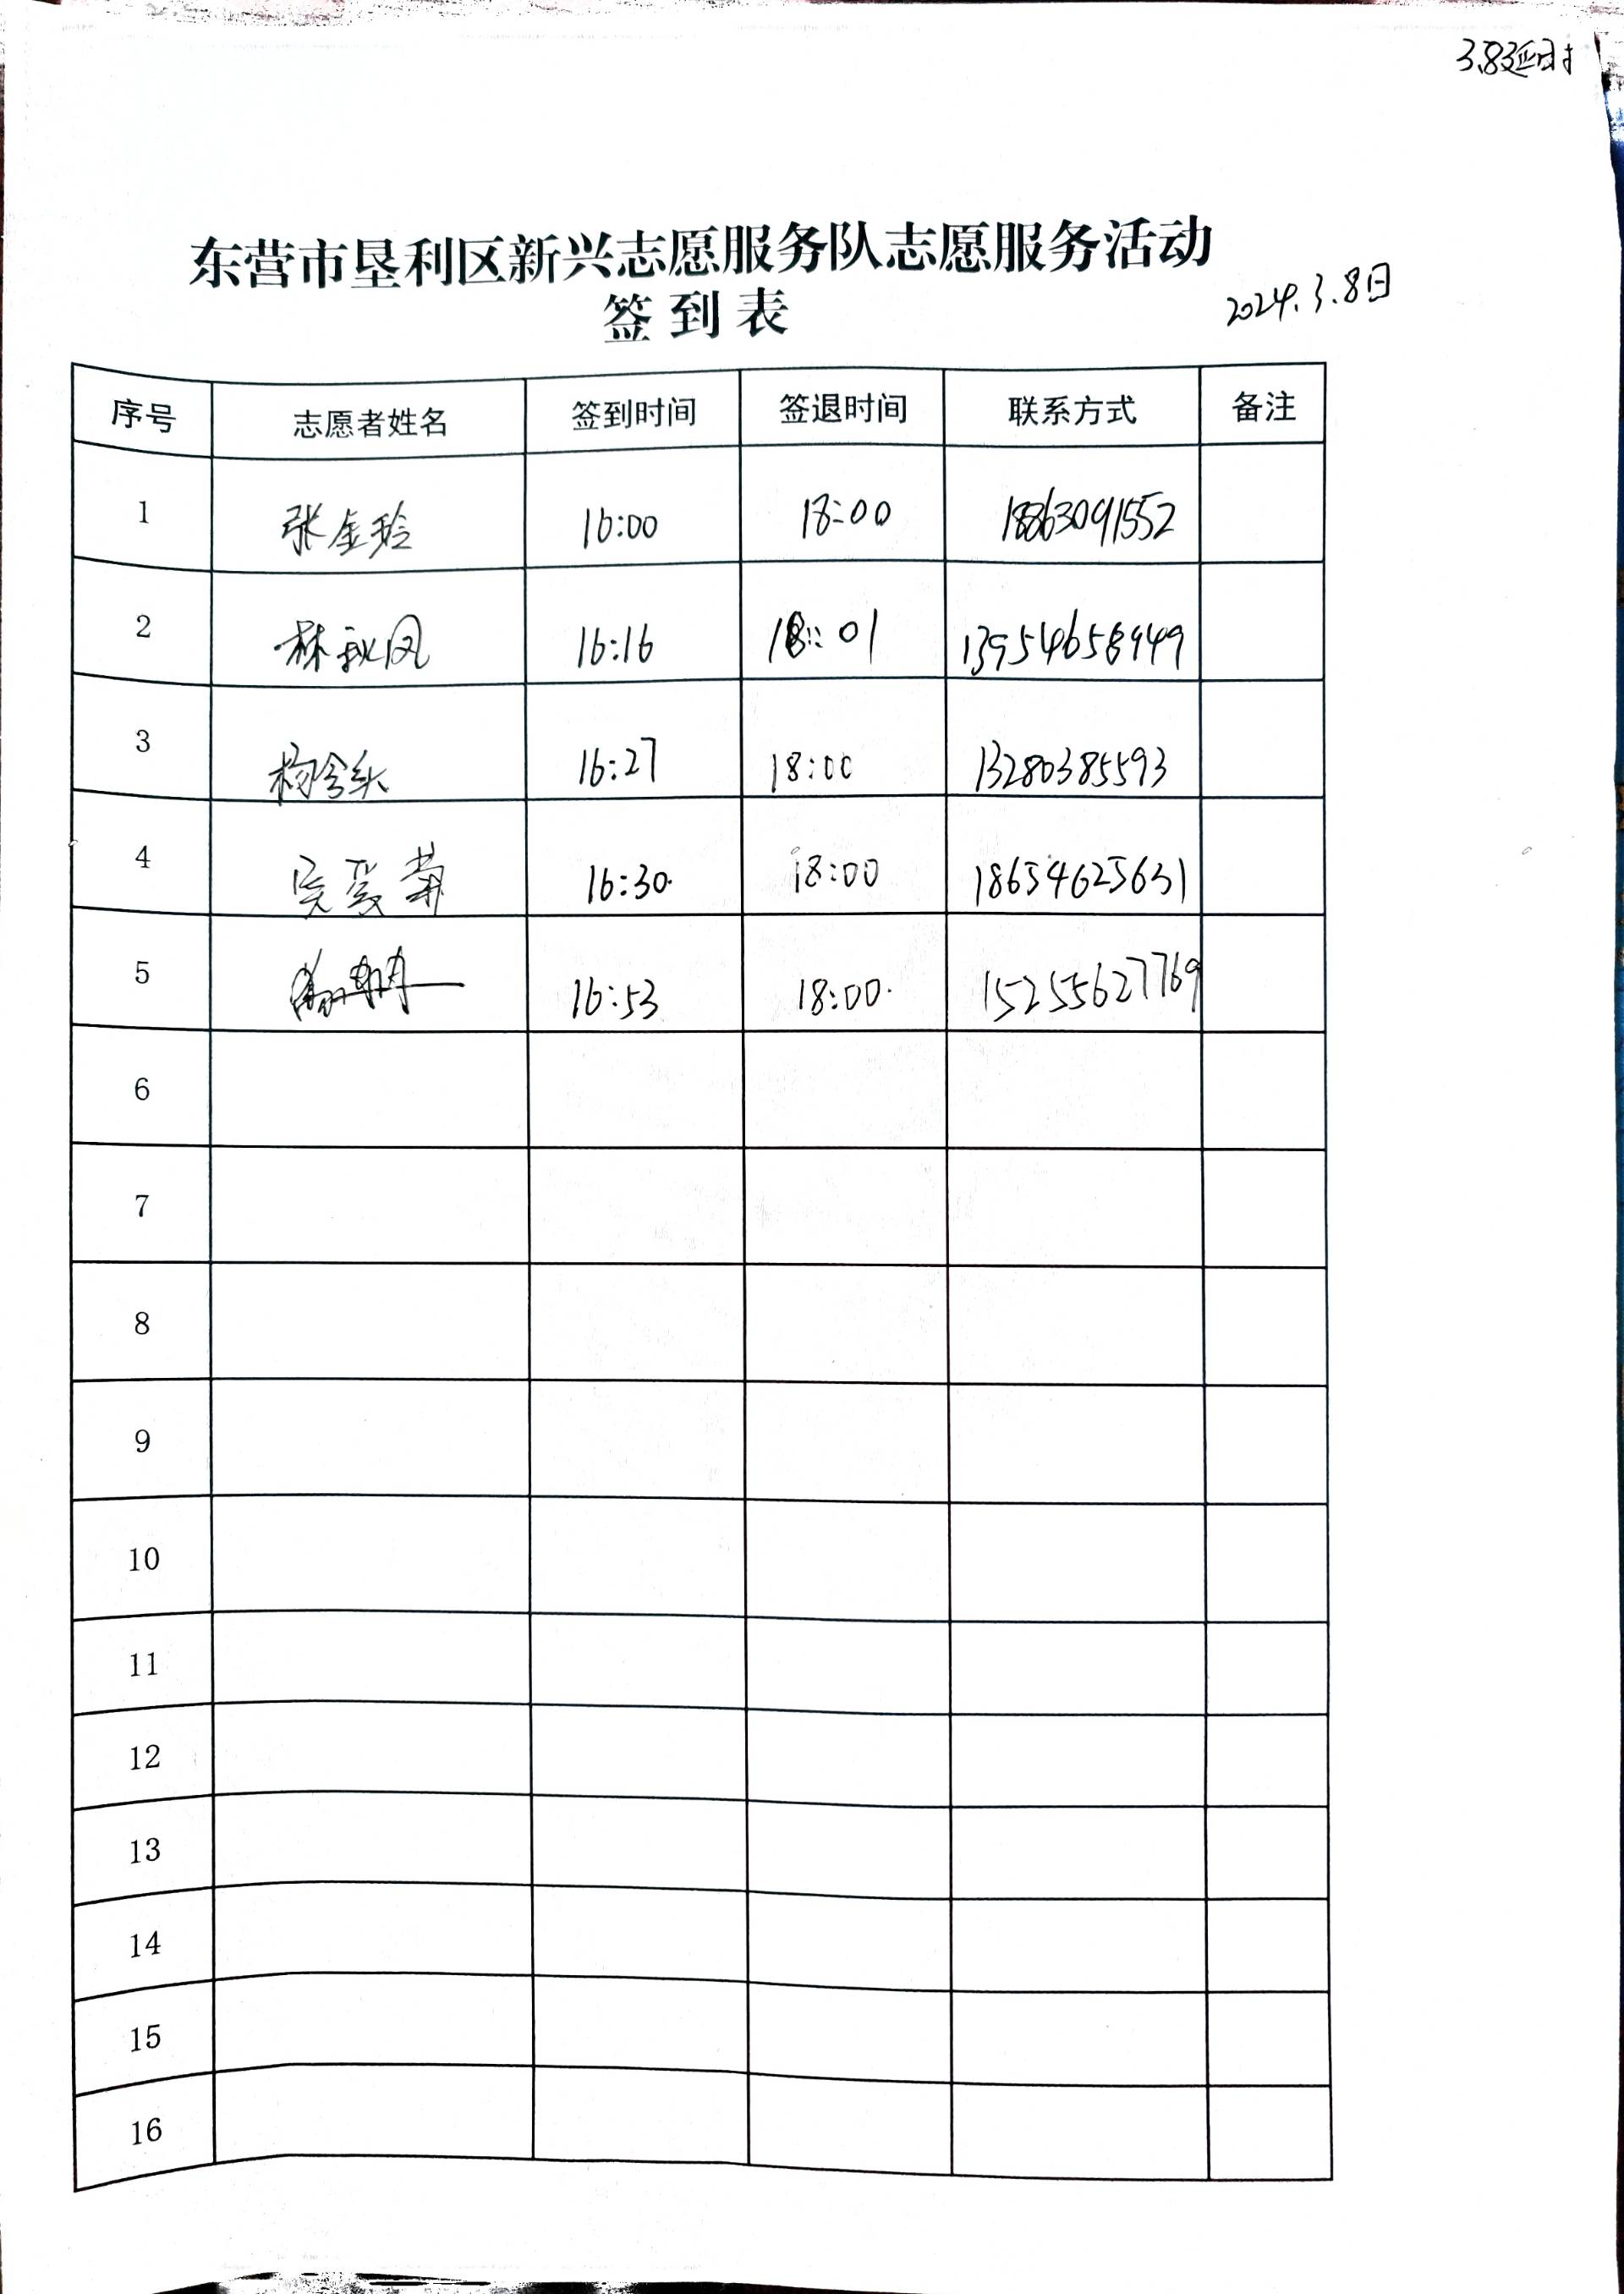 3.8延时
东营市垦利区新兴志愿服务队志愿服务活动
签到表
2024.3.8日
序号 志愿者姓名 签到时间 签退时间 联系方式 备注
1 张金玲 16:00 18:00 18863091552
2 林秋凤 16:16 18:01 13954658949
3 16:27 18:00 13280385593
4 吴爱菊 16:30 18:00 18654625631
5 16:53 18:00 15255627769
6
7
8
9
10
11
12
13
14
15
16